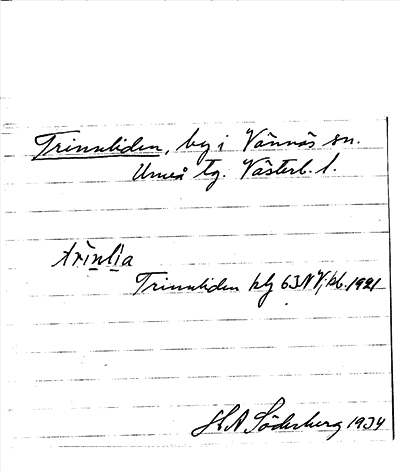 Trinnliden, by i Vännäs sn.
Umeå tg. Västerb. l.
trìnlìa
Trinnliden kbg 63 NV; kb. 1921
H A Söderberg 1934